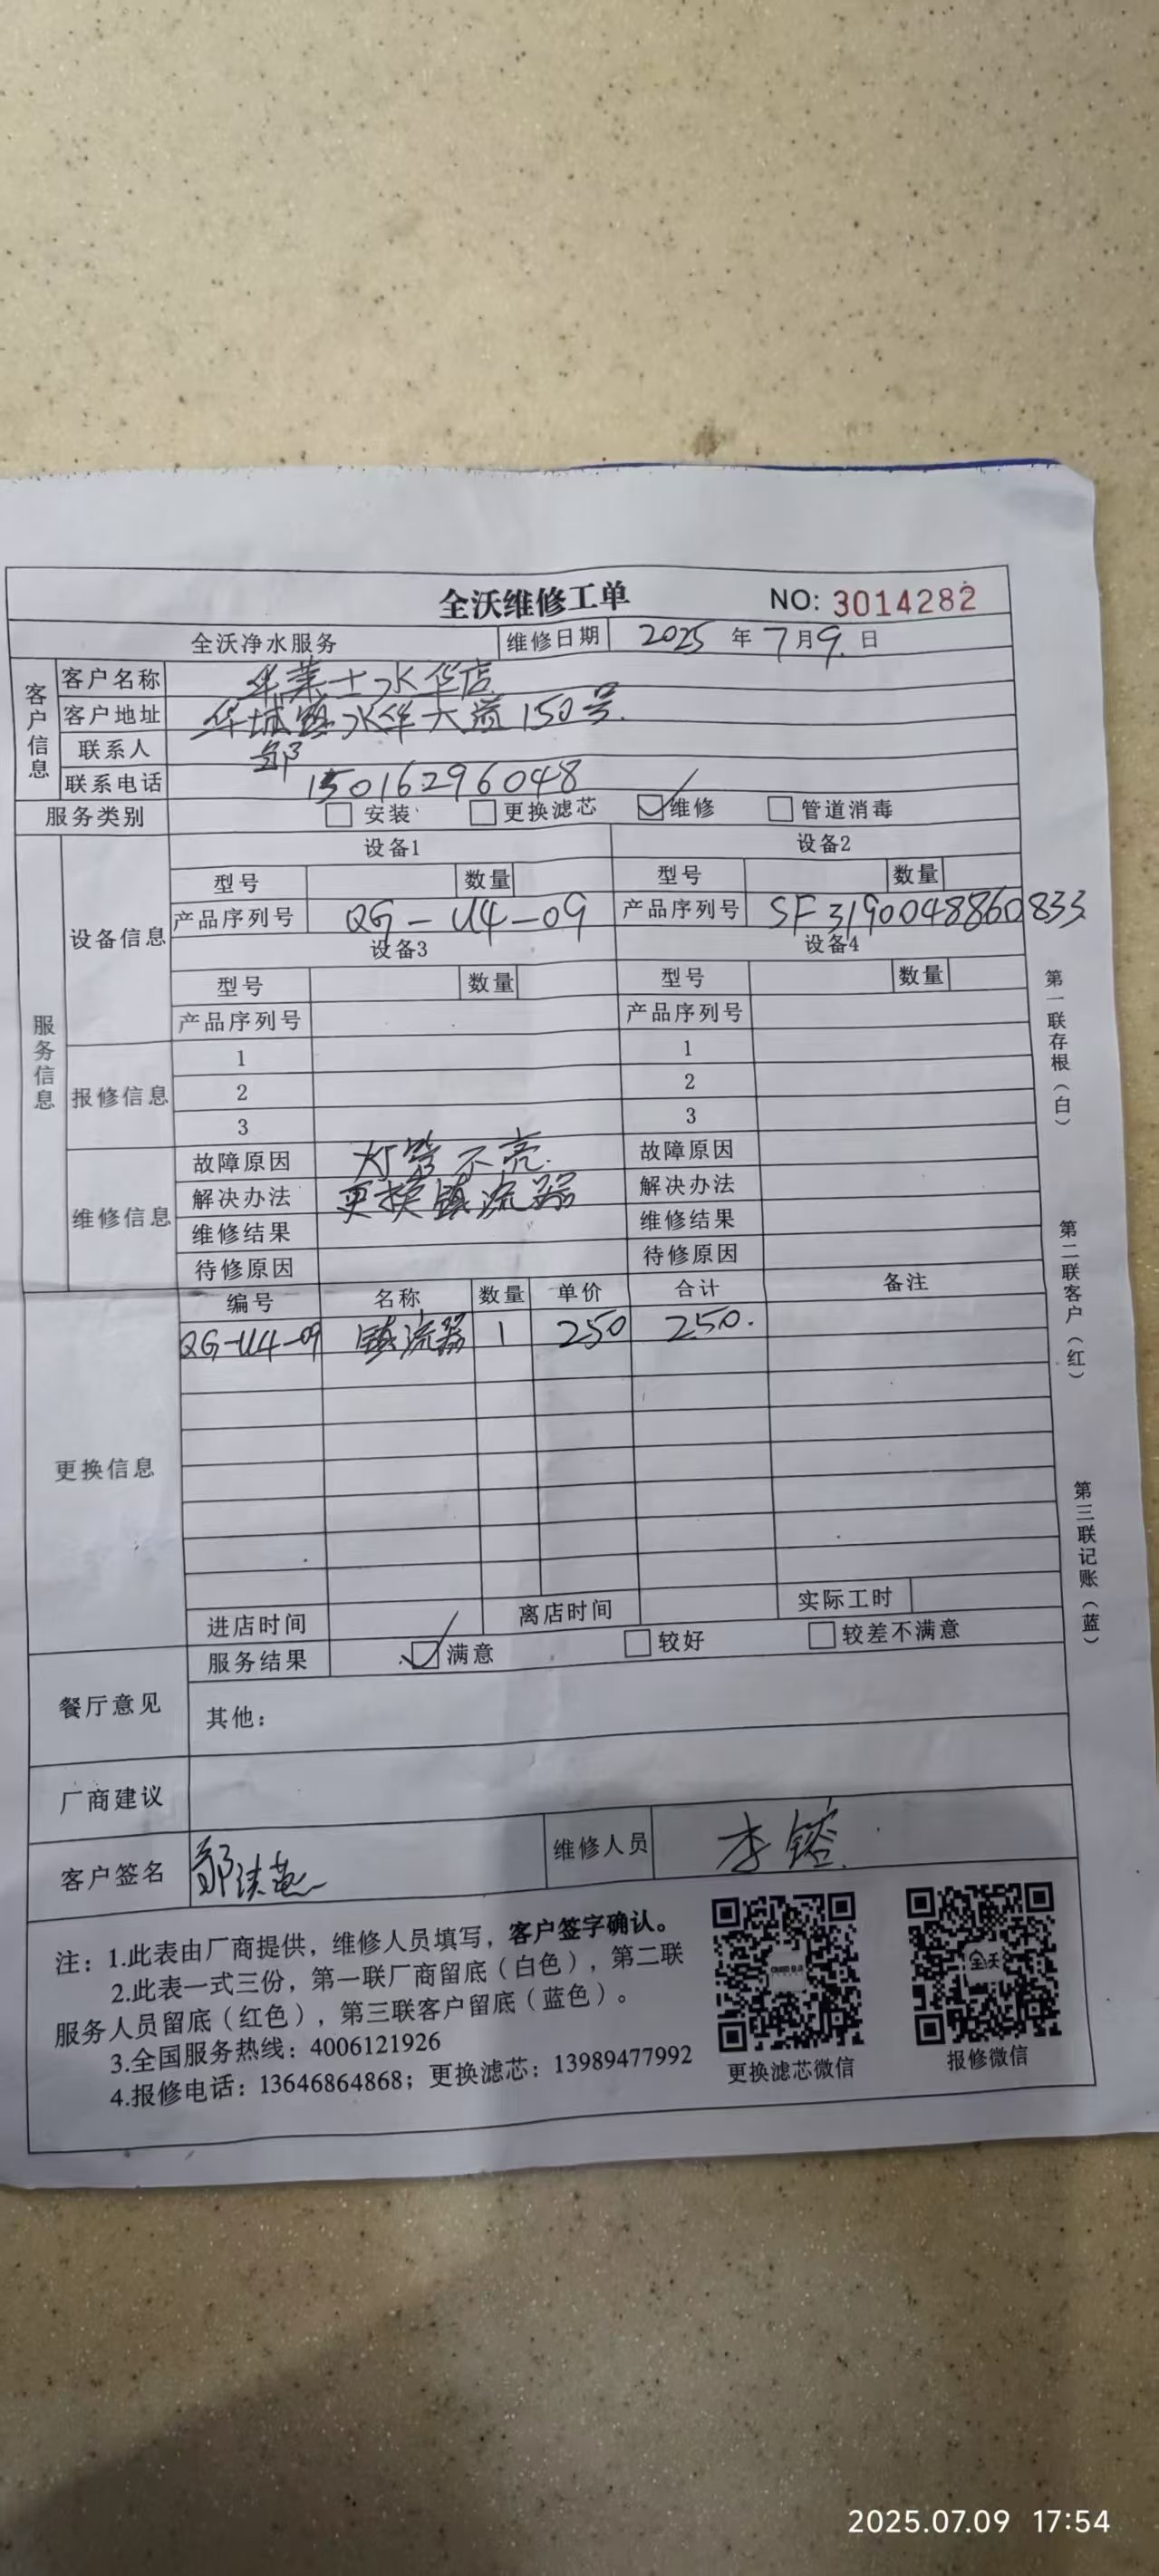 全沃维修工单 NO: 3014282
全沃净水服务 维修日期 2025 年 7 月 9. 日
客户信息
客户名称 华莱士水华店
客户地址 华城镇水华大道150号.
联系人 邹
联系电话 15016296048
服务类别 安装 更换滤芯 维修 管道消毒
服务信息
设备信息
设备1 设备2
型号 数量 型号 数量
产品序列号 QG-U4-09 产品序列号 SF3190048860833
设备3 设备4
型号 数量 型号 数量
产品序列号 产品序列号
报修信息
1 1
2 2
3 3
维修信息
故障原因 灯管不亮. 故障原因
解决办法 更换镇流器 解决办法
维修结果 维修结果
待修原因 待修原因
更换信息
编号 名称 数量 单价 合计 备注
QG-U4-09 镇流器 1 250 250.
进店时间 离店时间 实际工时
餐厅意见
服务结果 满意 较好 较差不满意
其他：
厂商建议
客户签名 邹 维修人员 李
注：1.此表由厂商提供，维修人员填写，客户签字确认。
2.此表一式三份，第一联厂商留底（白色），第二联
服务人员留底（红色），第三联客户留底（蓝色）。
3.全国服务热线：4006121926
4.报修电话：13646864868；更换滤芯：13989477992
更换滤芯微信 报修微信
全沃
第一联存根（白）
第二联客户（红）
第三联记账（蓝）
2025.07.09 17:54